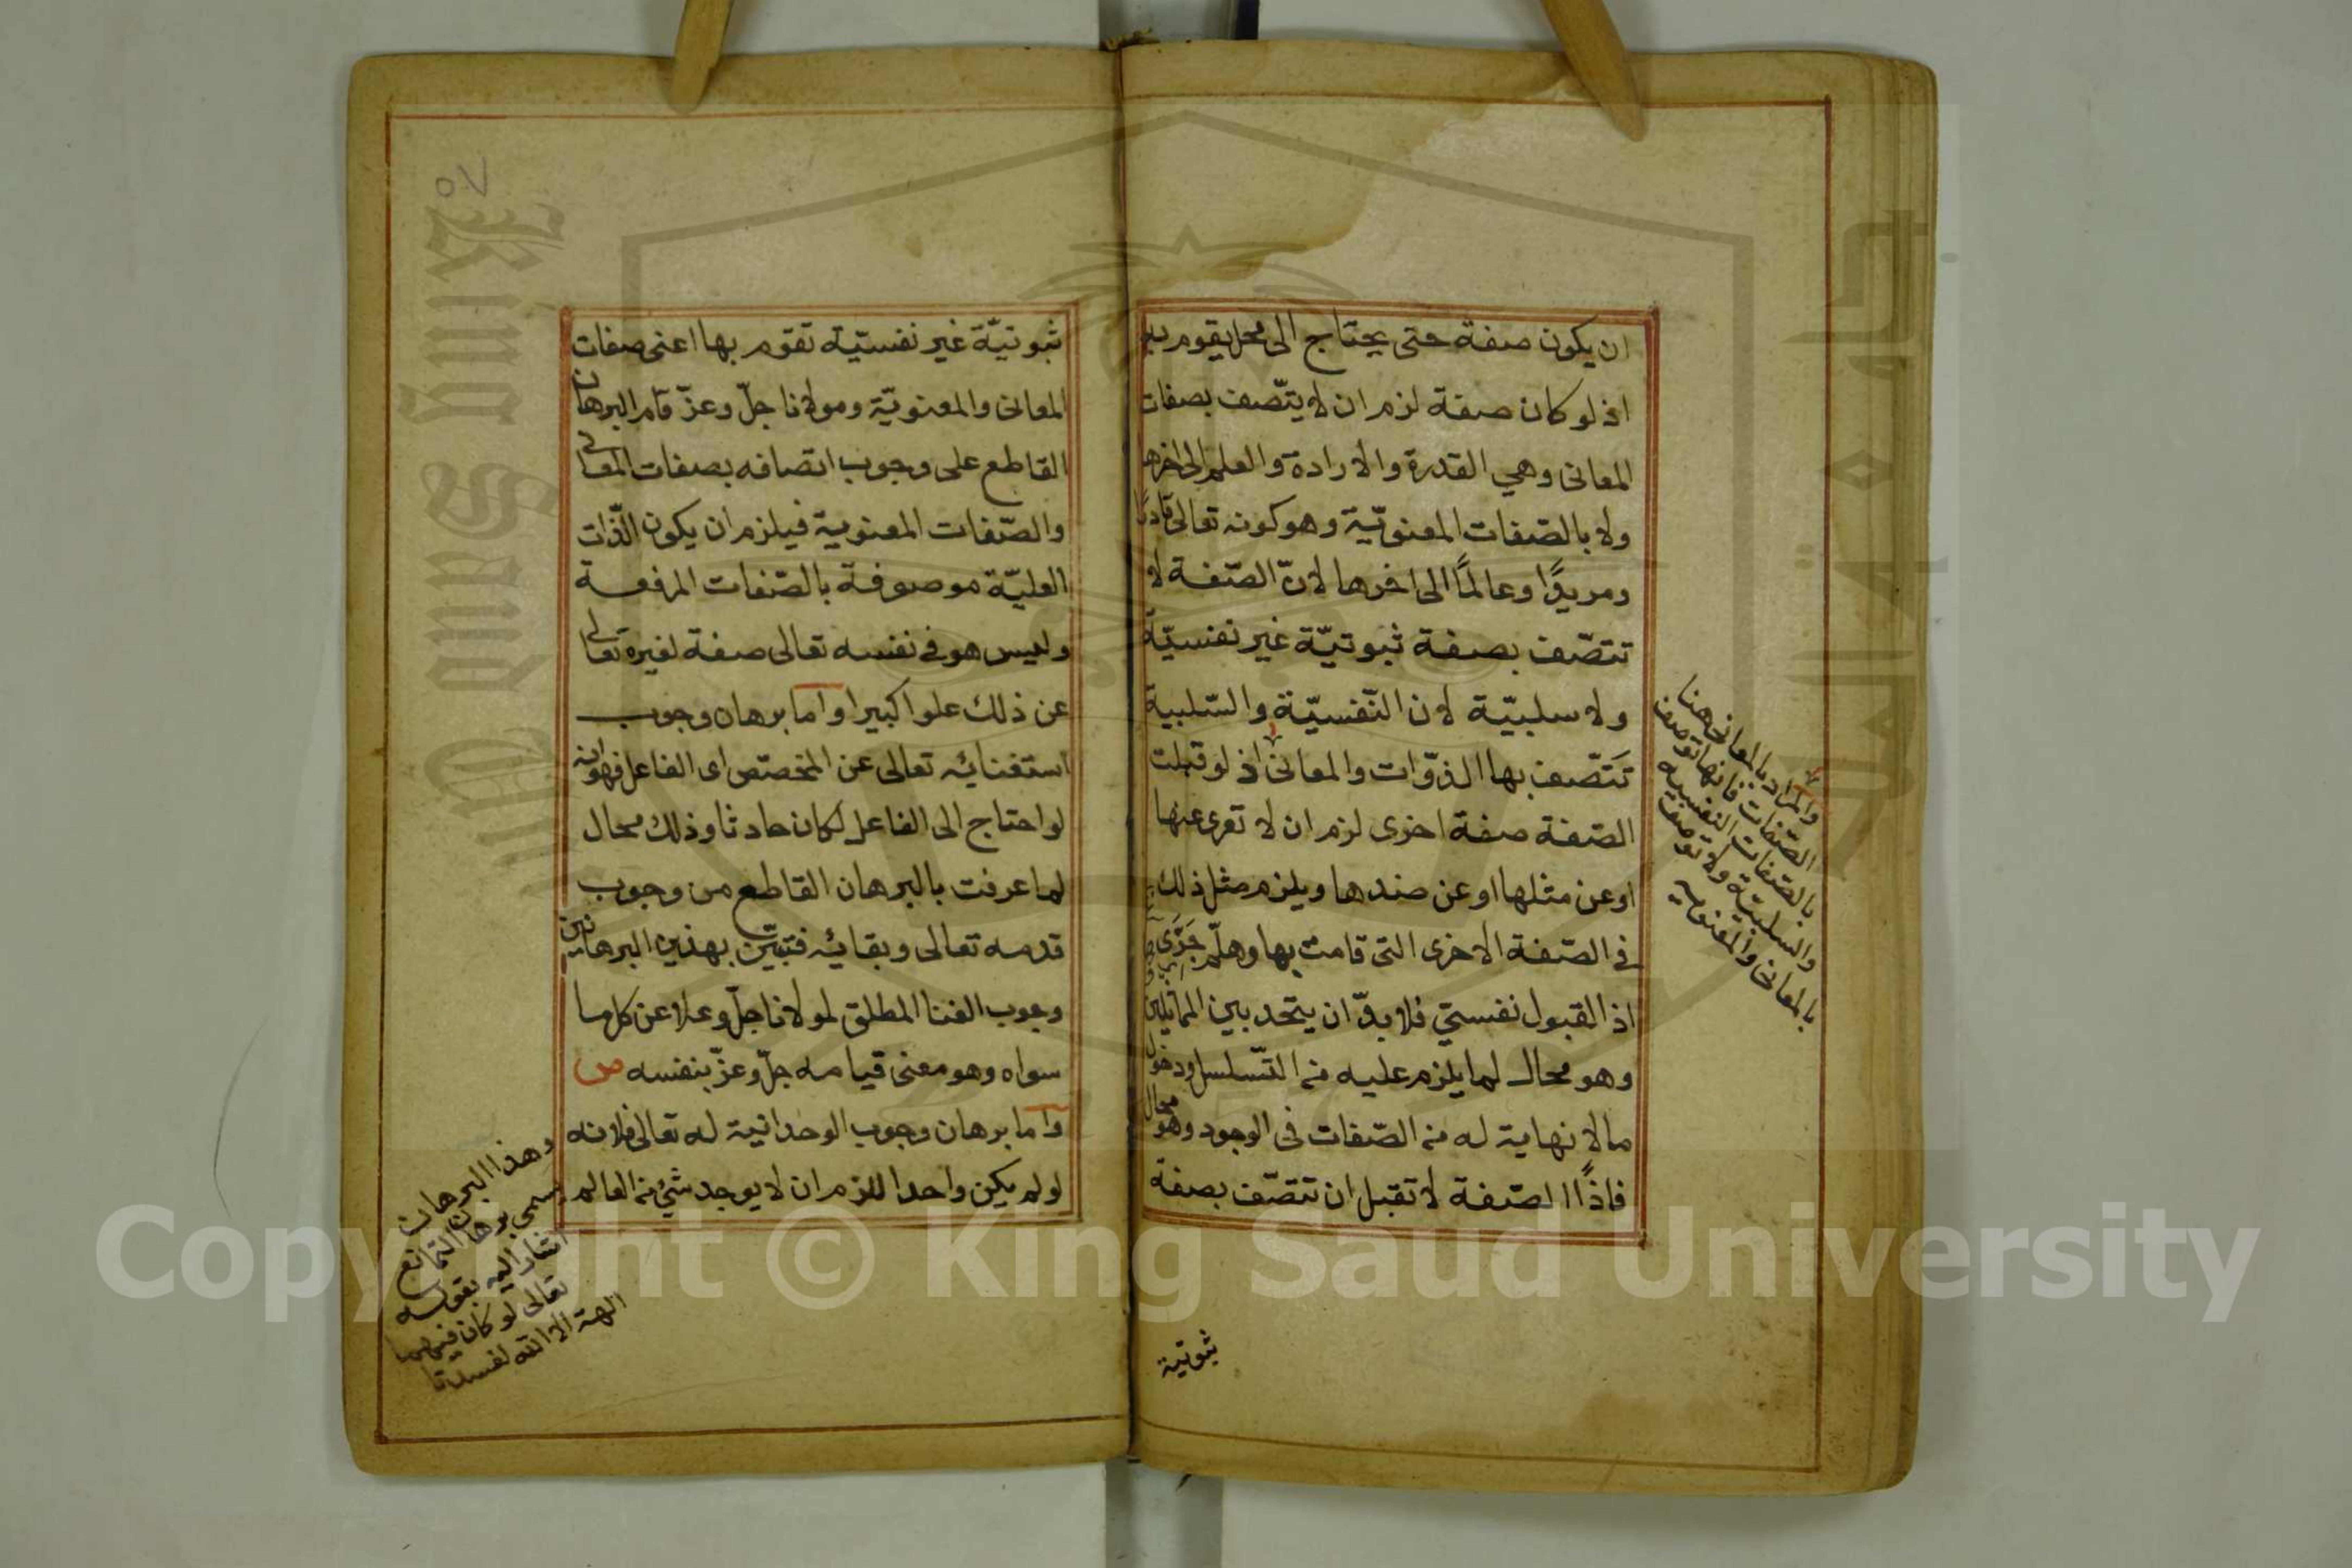 ان يكون صفة حتى يحتاج الى محل يقوم به
اذ لو كان صفة لزم ان لا يتّصف بصفات
المعانى وهي القدرة والارادة والعلم الى اخرها
ولا بالصّفات المعنويّة وهو كونه تعالى قادرًا
ومريدًا وعالمًا الى اخرها لانّ الصّفة لا
تتصّف بصفة ثبوتيّة غير نفسيّة
ولا سلبيّة لان النّفسيّة والسّلبية
تَتّصف بها الذوّات والمعانى اذ لو قبلت
الصّفة صفة اخرى لزم ان لا تعرى عنها
او عن مثلها او عن ضدها ويلزم مثل ذلك
فى الصّفة الاخرى التى قامت بها وهلّم جَرَّى
اذ القبول نفسىّ فلا بدّ ان يتحد بين المماثلين
وهو محال لما يلزم عليه من التّسلسل ودخول
مالا نهاية له من الصّفات فى الوجود وهو محال
فاذًا الصّفة لا تقبل ان تتصّف بصفة
ثبوتية
والمراد بالمعانى هنا
الصّفات فانها توصف
بالصّفات النفسيه
والسلبيّة ولا توصف
بالمعانى والمعنويه
٥٧
ثبوتيّة غير نفسيّة تقوم بها اعنى صفات
المعانى والمعنويّة ومولانا جلّ وعزّ قام البرهان
القاطع على وجوب اتصافه بصفات المعانى
والصّفات المعنوية فيلزم ان يكون الذّات
العليّة موصوفة بالصّفات المرفعة
وليس هو فى نفسه تعالى صفة لغيره تعالى
عن ذلك علوا كبيرا واما برهان وجوب
استغنائه تعالى عن المخصّص اى الفاعل فهو انه
لو احتاج الى الفاعل لكان حادثا وذلك محال
لما عرفت بالبرهان القاطع من وجوب
قدمه تعالى وبقائه فتبيّن بهذين البرهانين
وجوب الغنا المطلق لمولانا جلّ وعلا عن كل ما
سواه وهو معنى قيامه جلّ وعزّ بنفسه ص
واما برهان وجوب الوحدانية له تعالى فلانه
لو لم يكن واحدا للزم ان لا يوجد شئ من العالم
وهذا البرهان
يسمى برهان التمانع
اشار اليه بقوله
تعالى لو كان فيهما
الهة الا الله لفسدتا
Copyright © King Saud University
King Saud University